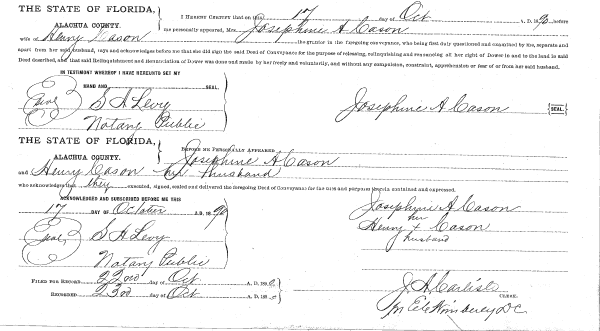 THE STATE OF FLORIDA,
ALACHUA COUNTY.
I HEREBY CERTIFY that on this 17 day of Oct A. D. 1890, before
me personally appeared, Mrs. Josephine A Cason
wife of Henry Cason the grantor in the foregoing conveyance, who being first duly questioned and examined by me, separate and
apart from her said husband, says and acknowledges before me that she did sign the said Deed of Conveyance for the purpose of releasing, relinquishing and renouncing all her right of Dower in and to the land in said
Deed described, and that said Relinquishment and Renunciation of Dower was done and made by her freely and voluntarily, and without any compulsion, constraint, apprehension or fear of or from her said husband.
IN TESTIMONY WHEREOF I HAVE HEREUNTO SET MY
HAND AND SEAL.
Seal S H Levy
Notary Public
Josephine A Cason {SEAL}
THE STATE OF FLORIDA,
ALACHUA COUNTY.
BEFORE ME PERSONALLY APPEARED Josephine A Cason
and Henry Cason her husband
who acknowledge that they executed, signed, sealed and delivered the foregoing Deed of Conveyance for the uses and purposes therein contained and expressed.
ACKNOWLEDGED AND SUBSCRIBED BEFORE ME THIS
17 DAY OF October A. D. 1890
Seal S H Levy
Notary Public
Josephine A Cason
her
Henry x Cason
husband
FILED FOR RECORD 22nd day of Oct A. D. 1890
RECORDED 23rd day of Oct A. D. 1890
J A Carlisle
CLERK.
D C